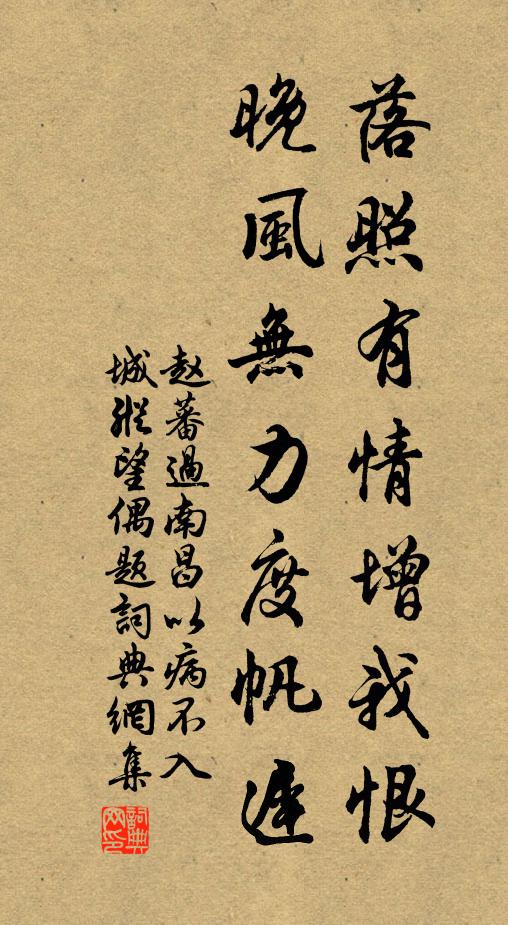 落照有情增我恨
晚風無力度帆遲
赵蕃過南昌以病不入
城縱望偶题詞典網集
詞典网印